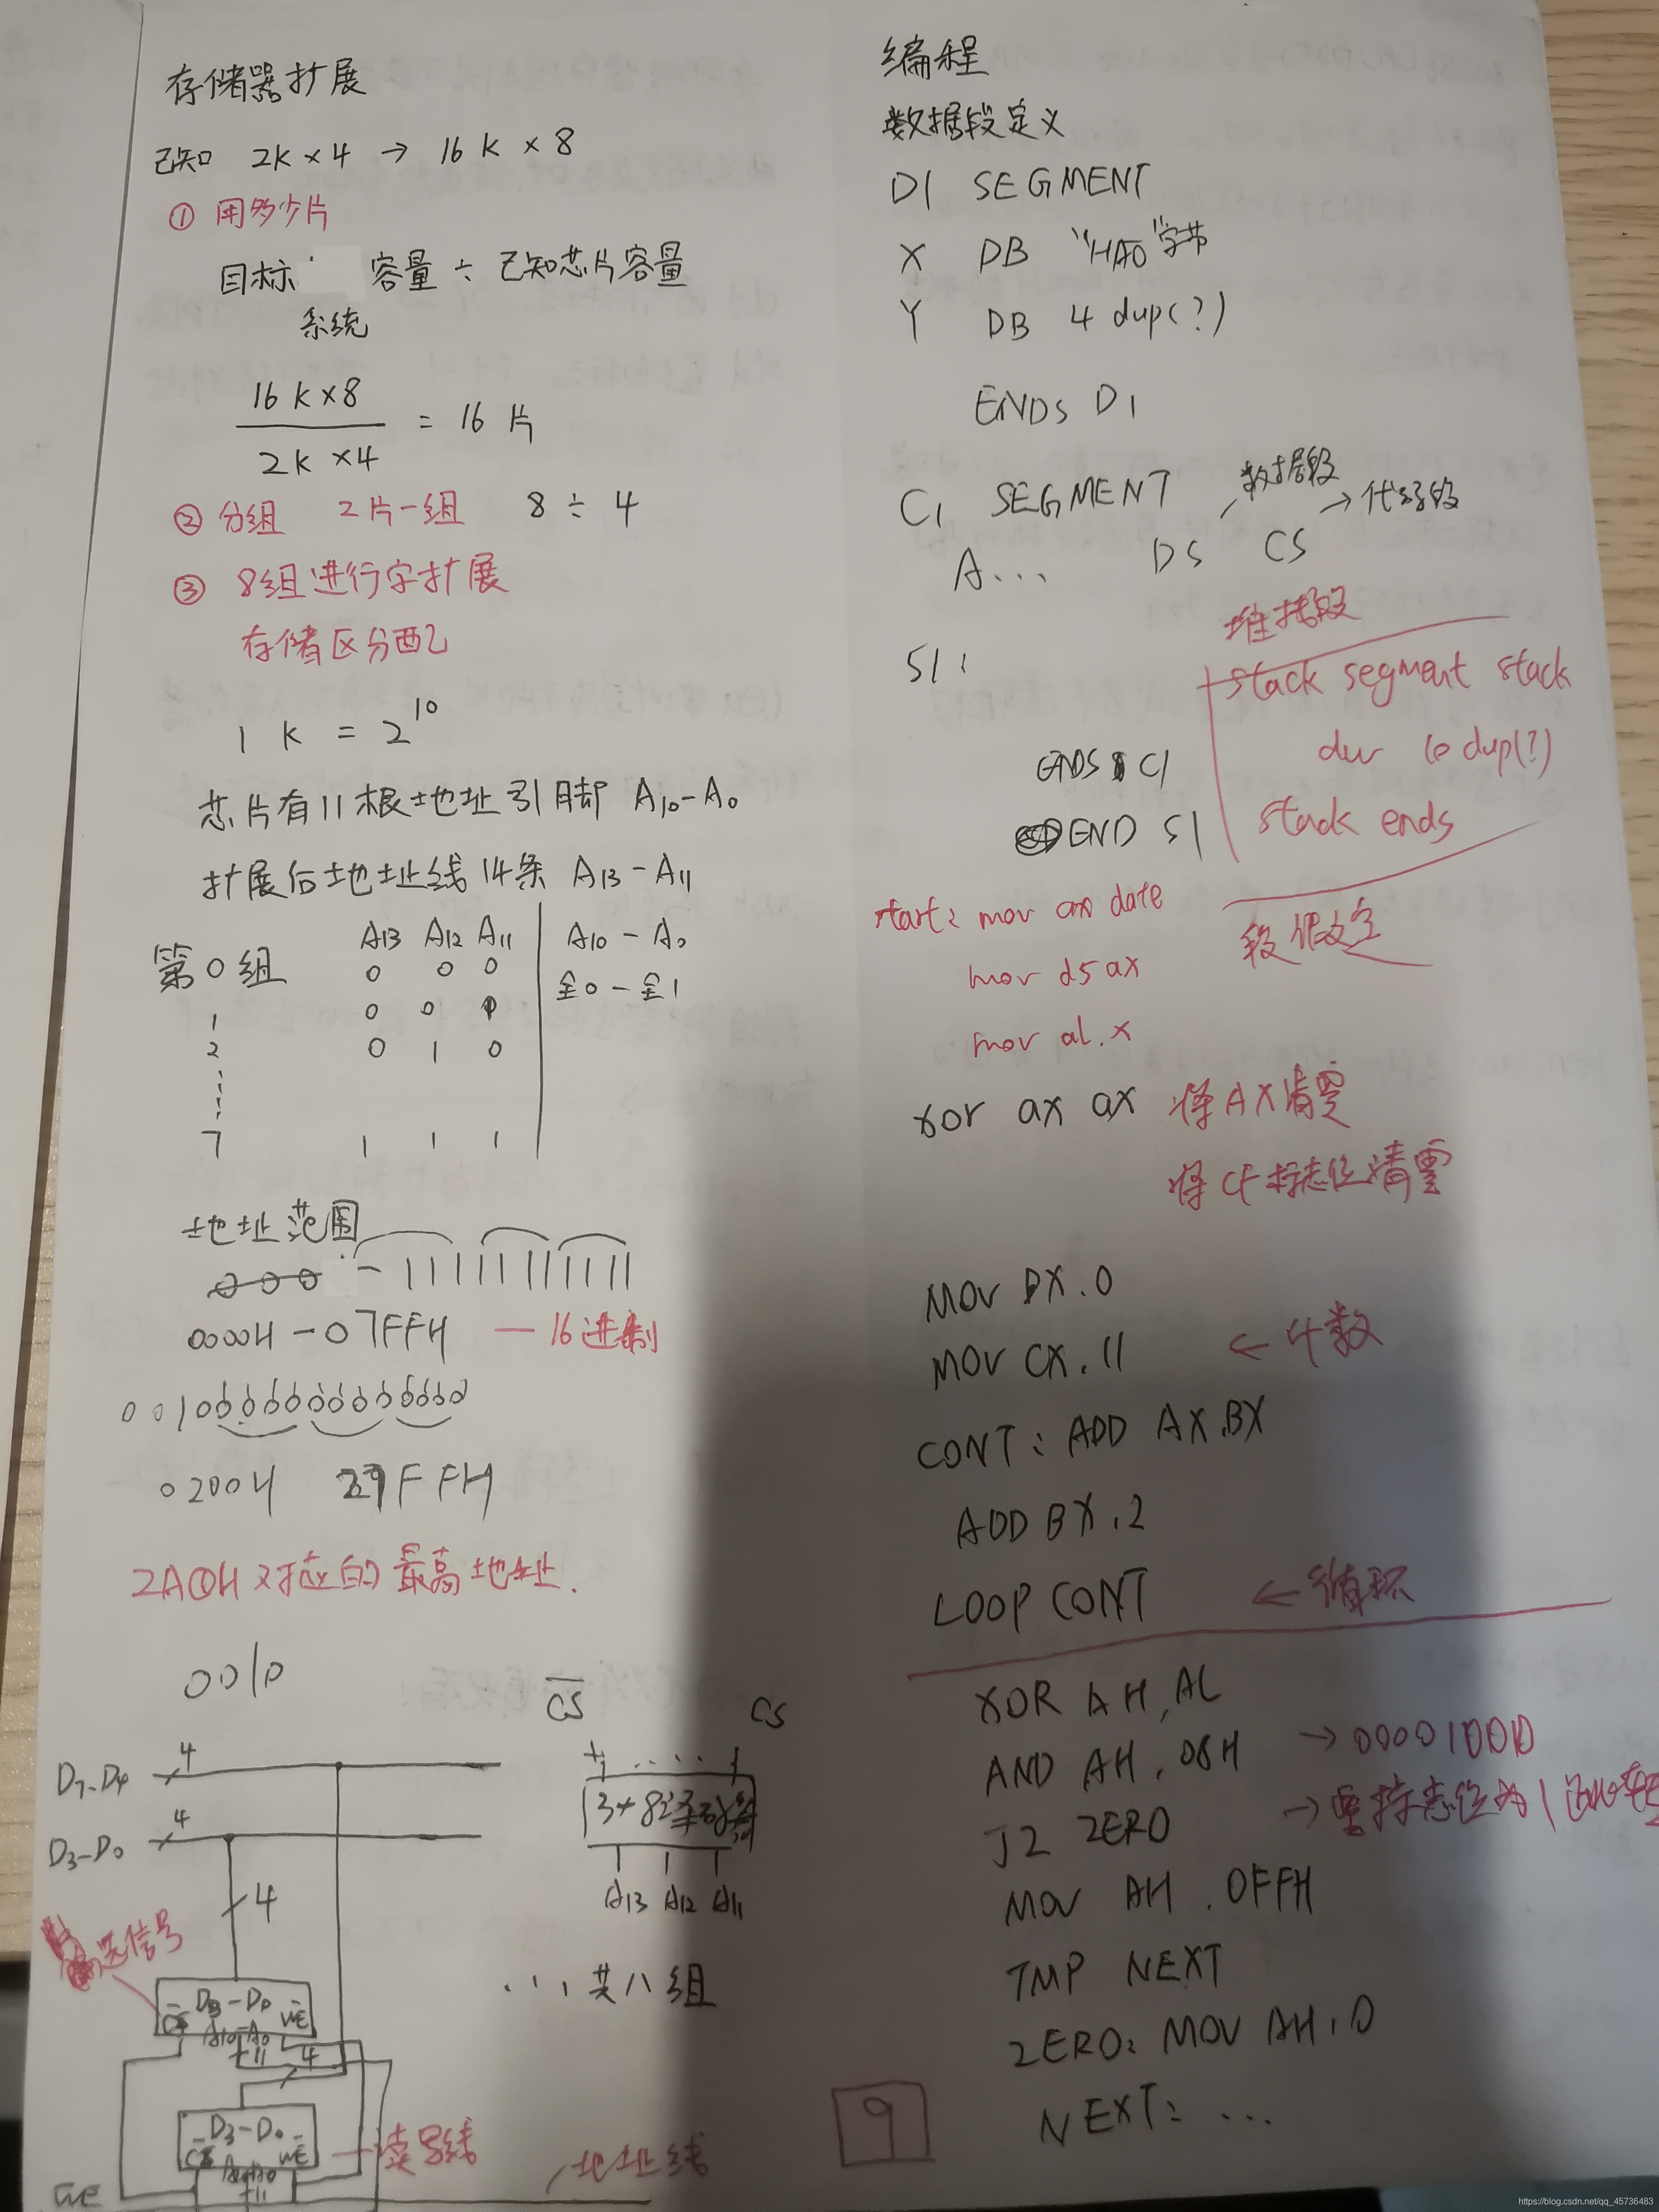 存储器扩展
已知 2K×4 → 16K×8
① 用多少片
目标 容量 ÷ 已知芯片容量
系统
16K×8
= 16片
2K×4
② 分组 2片一组 8÷4
③ 8组进行字扩展
存储区分配
1K = 2^10
芯片有11根地址引脚 A10-A0
扩展后地址线14条 A13-A11
A13 A12 A11 A10-A0
第0组 0 0 0 全0-全1
1 0 0 1
2 0 1 0
7 1 1 1
地址范围
000 - 11111111111
0000H-07FFH — 16进制
0200H
2A0H对应的最高地址.
0010
CS CS
D7-D4 4
D3-D0 4
3+8译码器
A13 A12 A11
4
选信号
D3-D0
WE
A10-A0
11 4
...共八组
D3-D0
WE
读写线
11
地址线
WE
编程
数据段定义
D1 SEGMENT
X DB "HAO" 字节
Y DB 4 dup(?)
ENDS D1
C1 SEGMENT 数据段 → 代码段
A... DS CS
堆栈段
S1:
stack segment stack
dw 10 dup(?)
stack ends
ENDS C1
END S1
start: mov ax date
段假定
mov ds ax
mov al.x
xor ax ax 将AX清零
将CF标志位清零
MOV BX.0
MOV CX.11 ← 个数
CONT: ADD AX.BX
ADD BX.2
LOOP CONT ← 循环
XOR AH,AL
AND AH.08H → 00001000
JZ ZERO
MOV AH.0FFH
JMP NEXT
ZERO: MOV AH,0
NEXT: ...
9
https://blog.csdn.net/qq_45736483